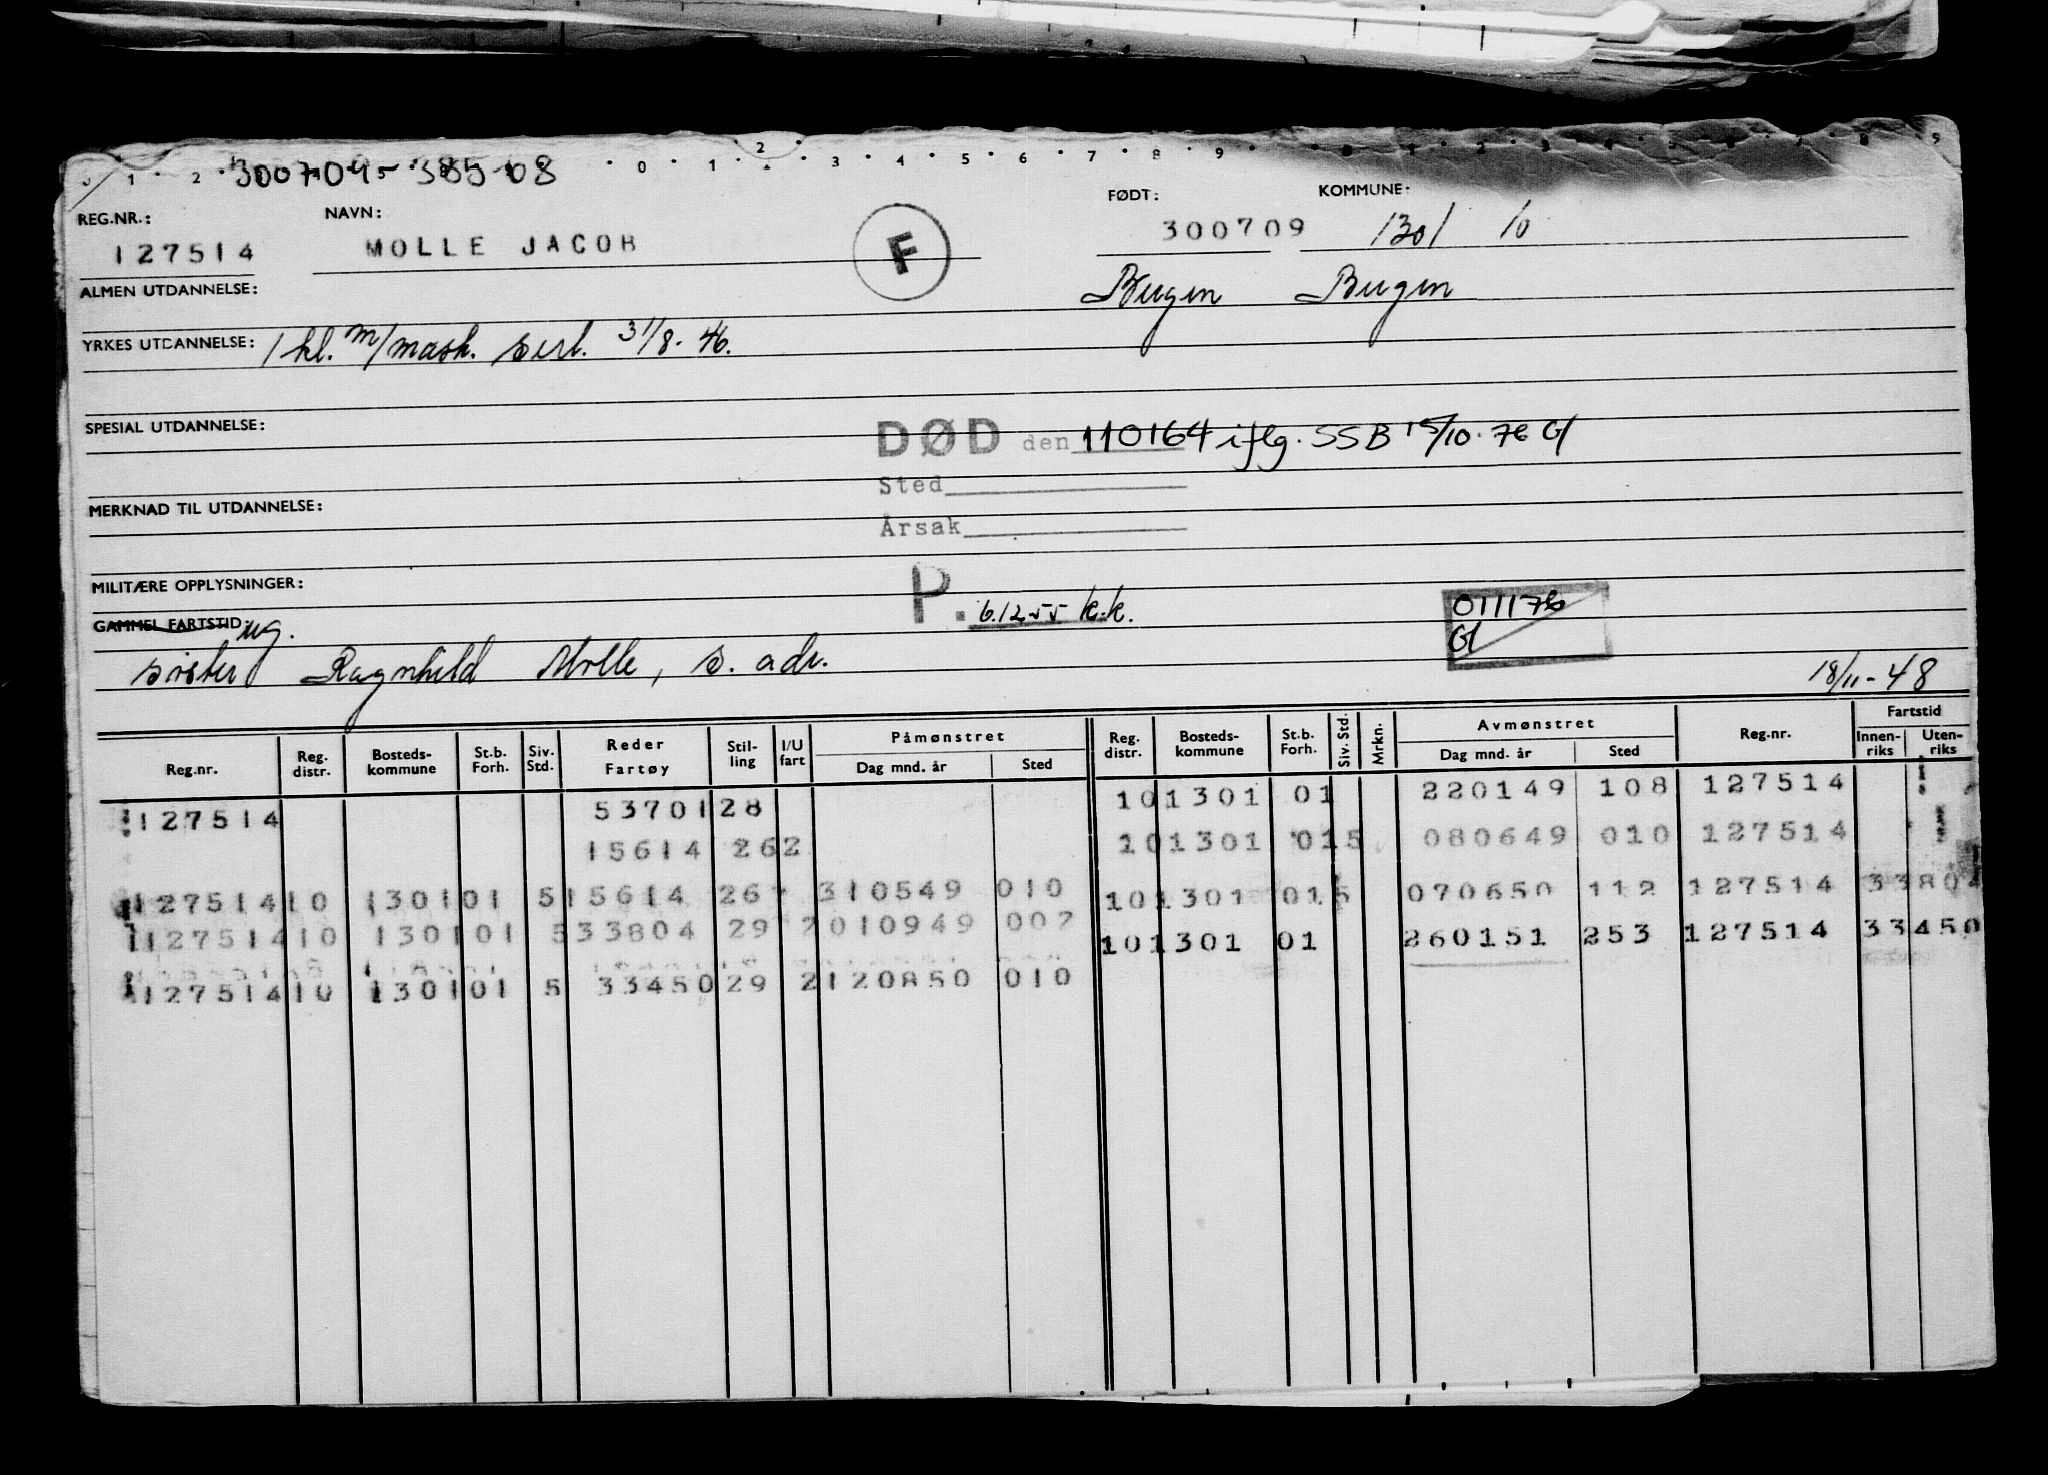 300709-38508
0 1 2 3 4 5 6 7 8 9
REG.NR.: NAVN: FØDT: KOMMUNE:
127514 MOLLE JACOB F 300709 1301 10
ALMEN UTDANNELSE: Bergen Bergen
YRKES UTDANNELSE: 1 kl. m/mask. sert. 31/8-46.
SPESIAL UTDANNELSE: DØD den 110164 iflg. SSB 15/10.76 Gl
Sted
MERKNAD TIL UTDANNELSE:
Årsak
MILITÆRE OPPLYSNINGER: P. 6.12.55 k.k. 011176
GAMMEL FARTSTID ug. Gl
søster Ragnhild Molle, s. adr. 18/11-48
Reg.nr. Reg. distr. Bosteds-kommune St.b. Forh. Siv. Std. Reder Fartøy Stil-ling I/U fart Påmønstret Dag mnd. år Sted Reg. distr. Bosteds-kommune St.b. Forh. Siv. Std. Mrkn. Avmønstret Dag mnd. år Sted Reg.nr. Fartstid Innen-riks Uten-riks
127514 53701 28 10 1301 01 220149 108 127514
15614 26 2 10 1301 01 5 080649 010 127514
127514 10 1301 01 5 15614 26 310549 010 10 1301 01 5 070650 112 127514 33804
127514 10 1301 01 5 33804 29 2 010949 002 10 1301 01 260151 253 127514 33450
127514 10 1301 01 5 33450 29 2 120850 010